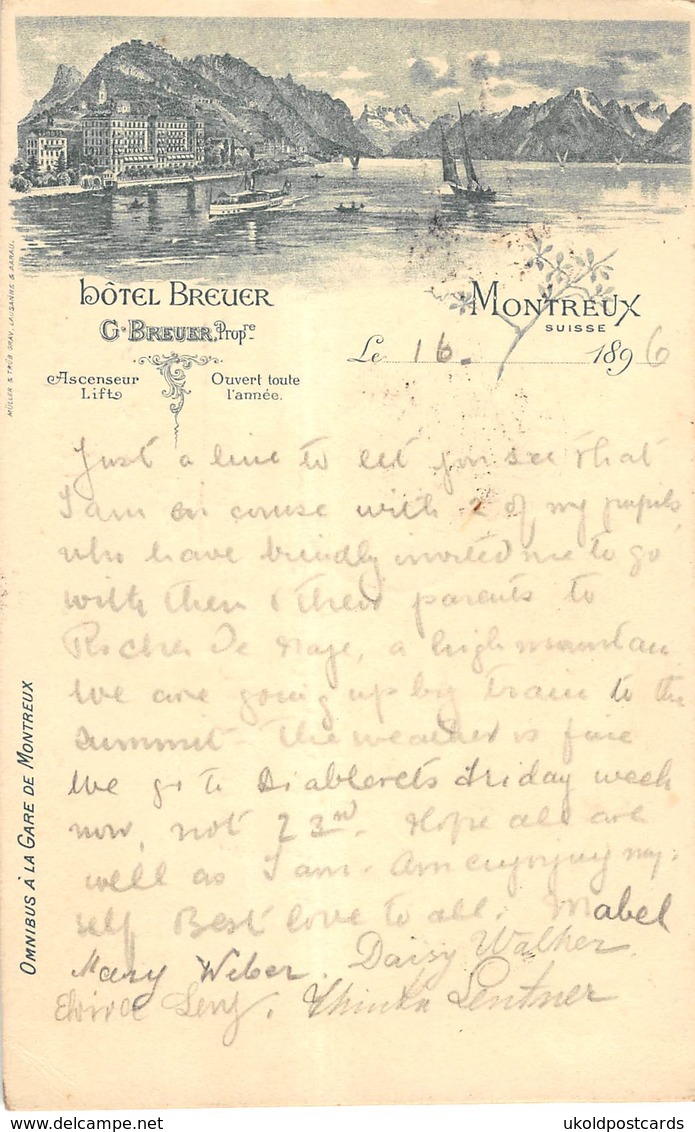 HÔTEL BREUER
G. BREUER, Propre
Ascenseur
Lift
Ouvert toute
l'année.
MONTREUX
SUISSE
Le 16. 1896
MÜLLER & TRÜB GRAV. LAUSANNE & AARAU.
OMNIBUS À LA GARE DE MONTREUX
Just a line to let you see that
I am en course with 2 of my pupils
who have kindly invited me to go
with them & their parents to
Rocher De Naye, a high mountain
We are going up by train to the
summit - The weather is fine
We go to Diablerets Friday week
now, not 23rd. Hope all are
well as I am. Am enjoying my-
self Best love to all. Mabel
Daisy Walker.
Mary Weber.
Lentner
ukoldpostcards - delcampe.net